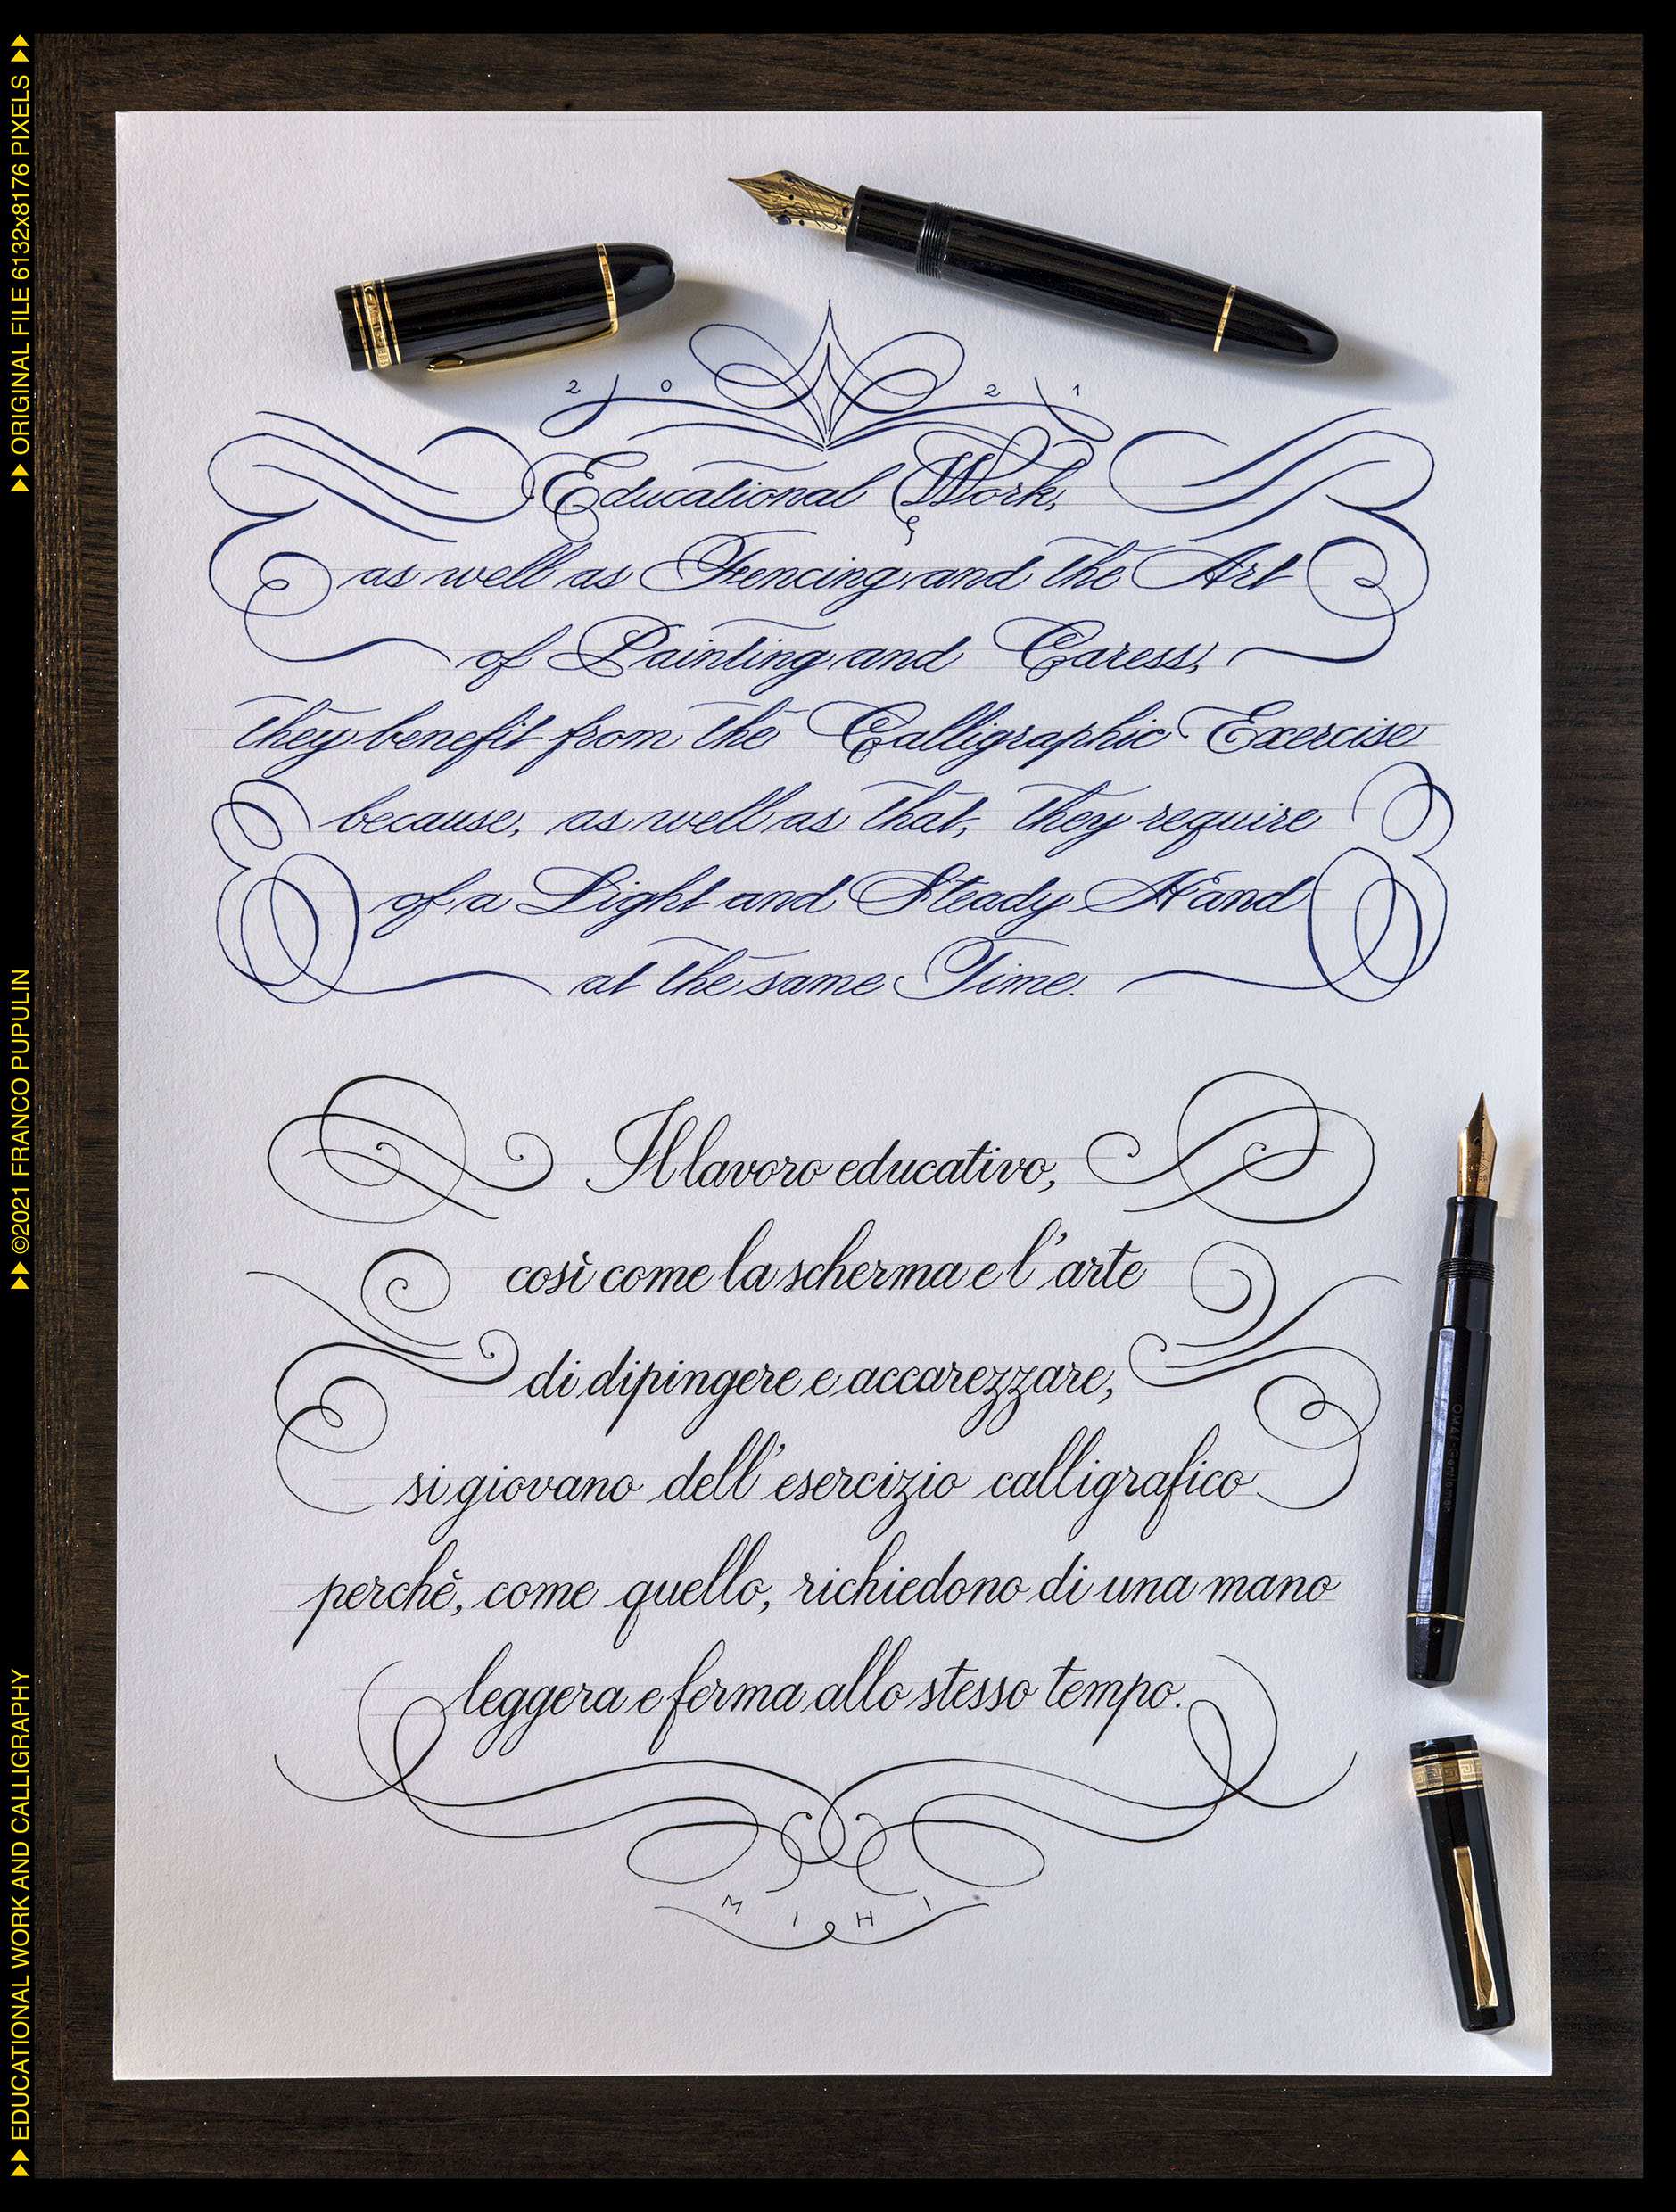 2 0 2 1
Educational Work,
as well as Fencing and the Art
of Painting and Caress,
they benefit from the Calligraphic Exercise
because, as well as that, they require
of a Light and Steady Hand
at the same Time.
Il lavoro educativo,
così come la scherma e l'arte
di dipingere e accarezzare,
si giovano dell'esercizio calligrafico
perchè, come quello, richiedono di una mano
leggera e ferma allo stesso tempo.
M I H I
ORIGINAL FILE 6132x8176 PIXELS
©2021 FRANCO PUPULIN
EDUCATIONAL WORK AND CALLIGRAPHY